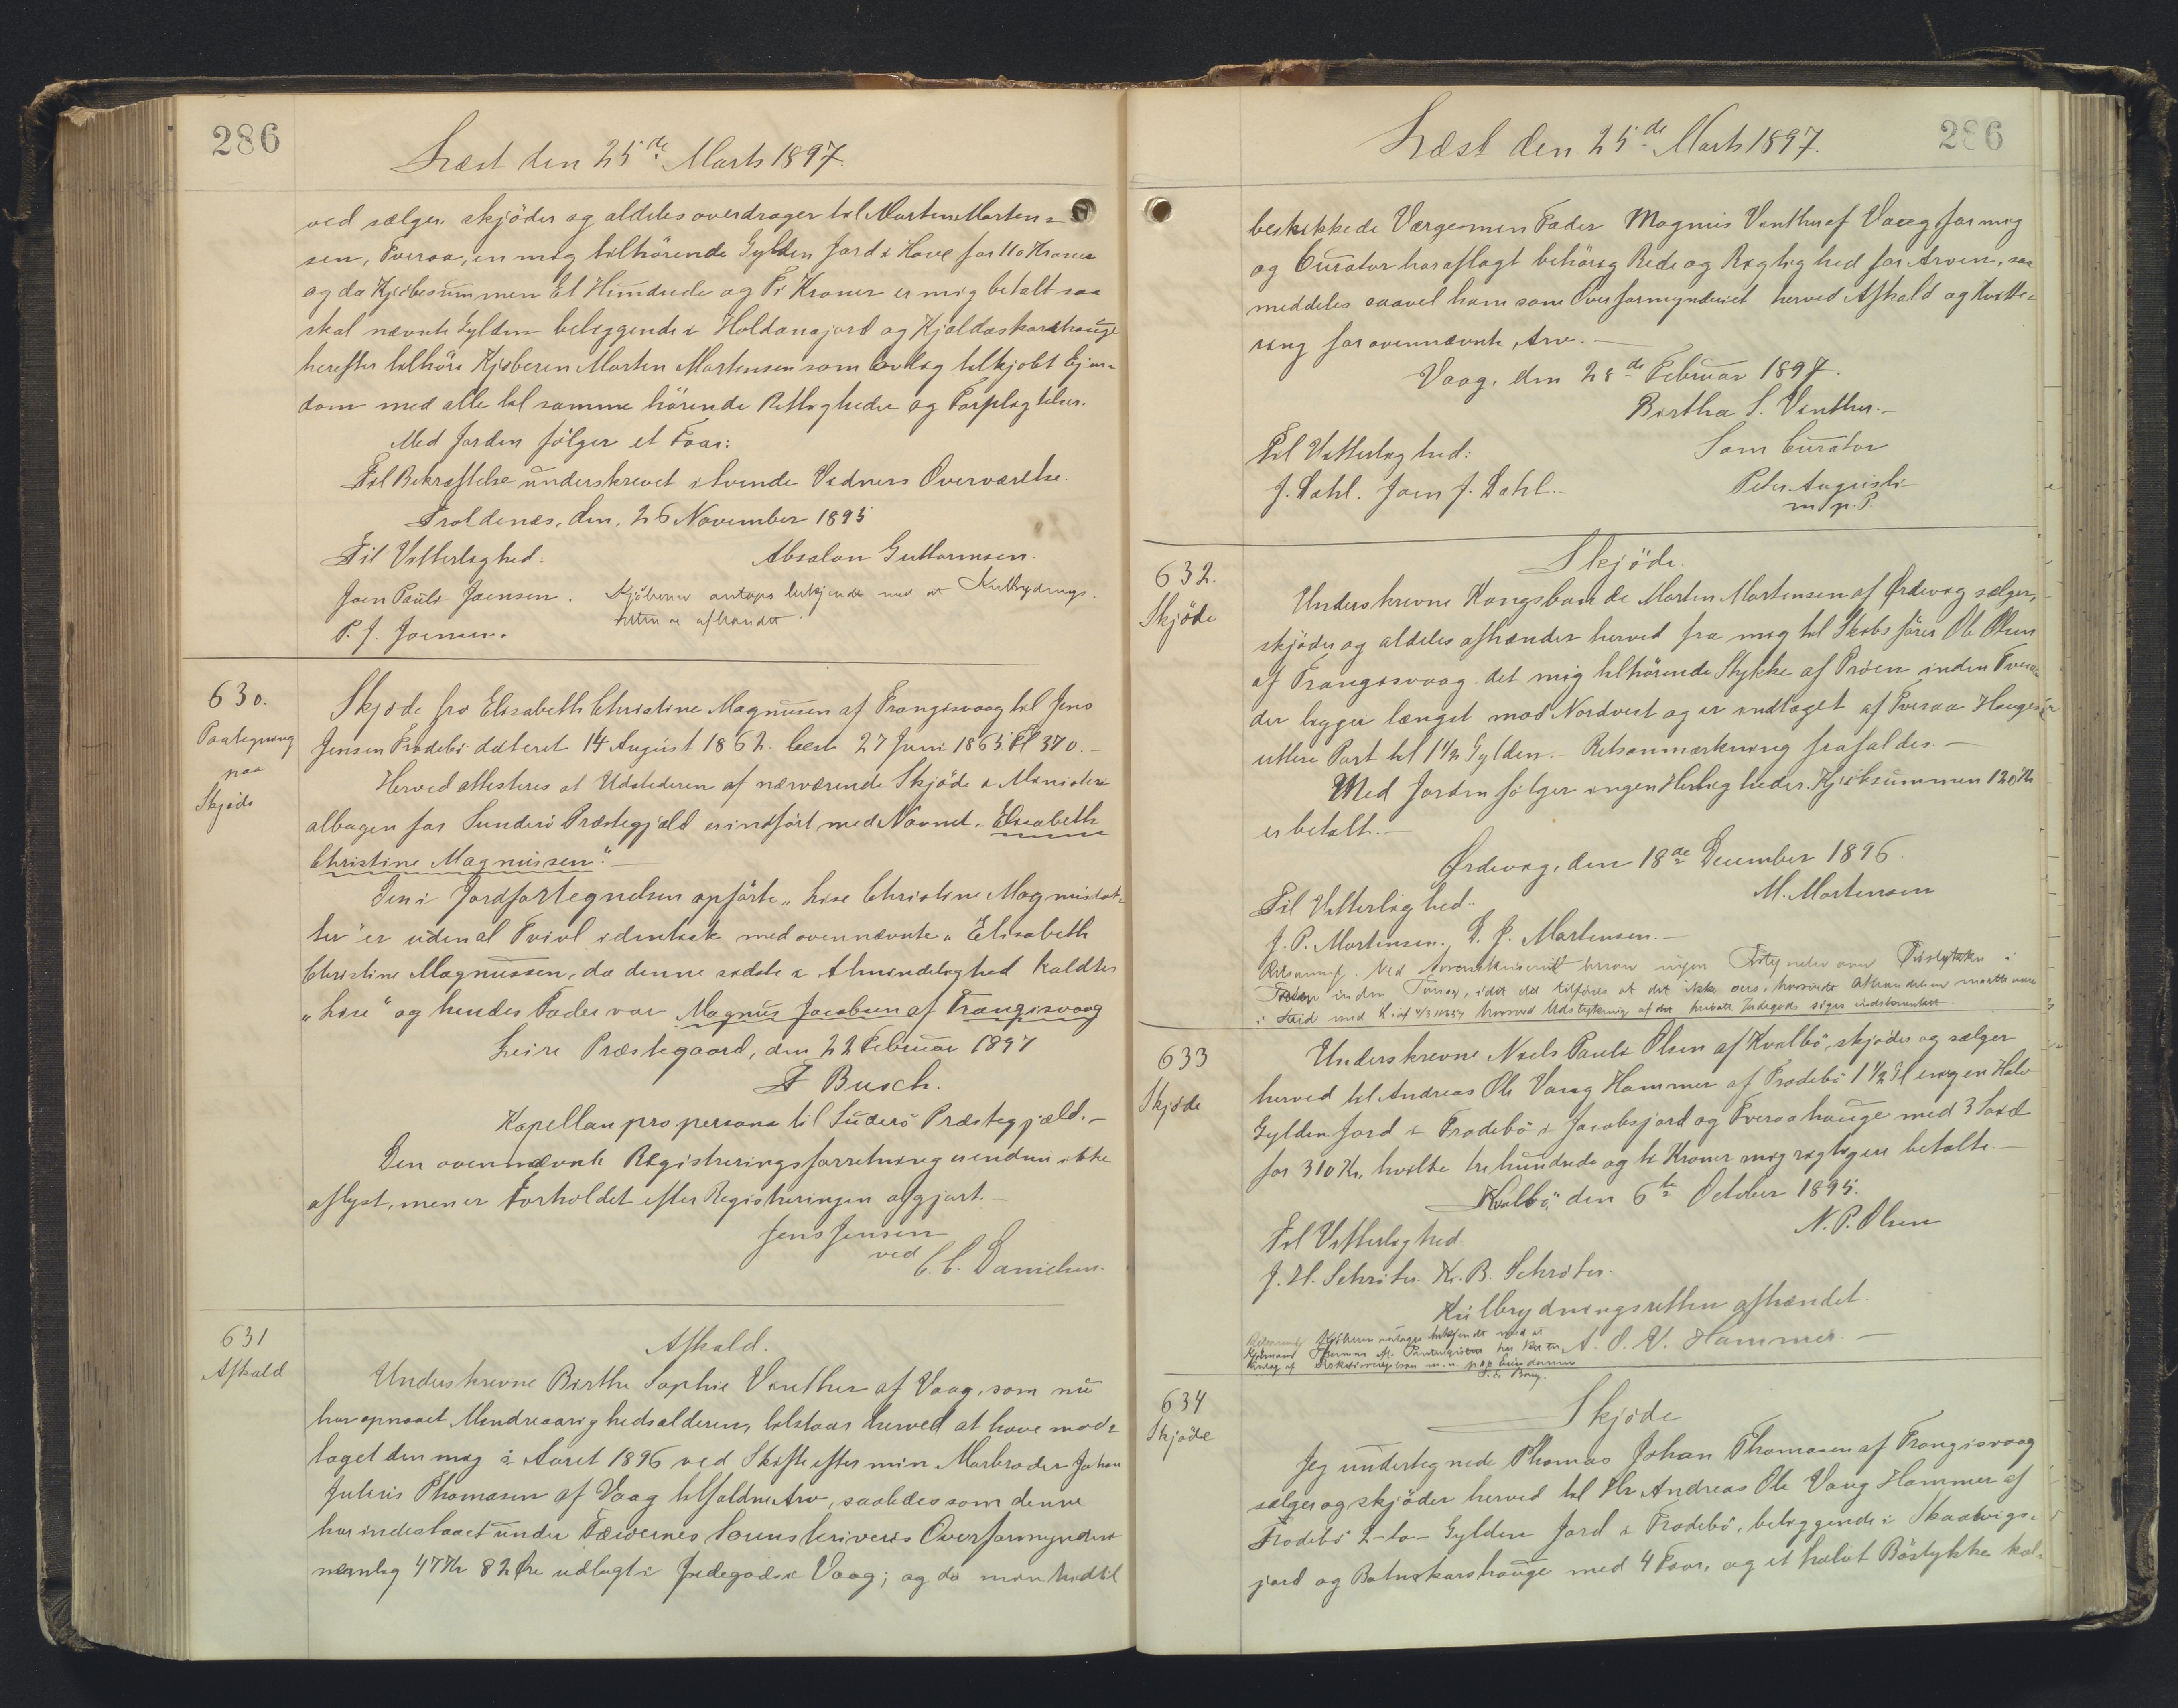 286
Læst den 25de Marts 1897.
ved sælger, skjøder og aldeles overdrager til Morten Morten=
sen, Tveraa, en mig tilhørende Gylden Jord i Hove for 110 Kroner
og da Kjøbesummen Et Hundrede og Ti Kroner er mig betalt saa
skal nævnte Gylden beliggende i Holdanajord og Kjaldaskorahauge
herefter tilhøre Kjøberen Morten Mortensen som lovlig tilkjøbt Ejen=
dom med alle til samme hörende Rettigheder og Forpligtelser.
Med Jorden følger et Faar:
Til Bekræftelse underskrevet i tvende Vidners Overværelse.
Froldenæs, den 26 November 1895
Til Vitterlighed:
Absalon Guttormsen.
Joen Pauli Joensen.
Kjøberen antages bekjendt med at Kulbrydnings-
retten er afhændet.
P. J. Joensen.
630.
Paategning
paa
Skjøde
Skjøde fra Elisabeth Christine Magnusen af Trangisvaag til Jens
Jensen Frodebø dateret 14 August 1862. læst 27 Juni 1865. Pl 370.-
Herved attesteres at Udstederen af nærværende Skjøde i Ministeri
albogen for Sunderö Præstegjæld er indført med Navnet „Elisabeth
Christine Magnussen".
Den i Jordfortegnelsen opförte „Lise Christine Magnusdat=
ter" er uden al Tvivl identisk med ovennævnte „Elisabeth
Christine Magnussen, da denne sidste i Almindelighed kaldtes
„Lise" og hendes Fader var Magnus Jacobsen af Trangisvaag
Qveire Præstegaard, den 22 Februar 1897
F Busch.
Kapellan pro persona til Suderö Præstegjæld.-
Den ovennævnte Registreringsforretning er endnu ikke
aflyst, men er Forholdet efter Registreringen afgjort.-
Jens Jensen
ved
C. C. Danielsen.
631
Afkald
Afkald.
Underskrevne Birthe Sophie Vinther af Vaag, som nu
har opnaaet Mindreaarighedsalderen, tilstaar herved at have mod=
taget den mig i Aaret 1896 ved Skifte efter min Morbroder Johan
Julius Thomasen af Vaag tilfaldne Arv, saaledes som denne
har indestaaet under Færøernes Sorenskriveris Overformynderi
nemlig 47 Kr 82 Øre udlagt i Jordegods i Vaag; og da min hidtil
286
Læst den 25de Marts 1897.
beskikkede Værge min Fader Magnus Vinther af Vaag for mig
og Curator har aflagt behørig Rede og Rigtighed for Arven, saa
meddeles saavel ham som Overformynderiet herved Afkald og Kvitte=
ring for ovennævnte Arv.-
Vaag, den 28de Februar 1897.
Birtha S. Vinther.-
Til Vitterlighed:
Som Curator
J. Dahl. Joen J. Dahl.
Peter Augusti
m. p. P.
632.
Skjøde
Skjøde.
Underskrevne Kongsbonde Morten Mortensen af Ørdevig sælger,
skjøder og aldeles afhænder herved fra mig til Skibsfører Ole Olsen
af Trangisvaag det mig tilhørende Stykke af Trøen inden Tveraa
der ligger længst mod Nordvest og er indtaget af Tveraa Hauges
uttere Part til 1½ Gylden.- Retsanmærkning frafaldes.-
Med Jorden følger ingen Herligheder. Kjøbsummen 120 Kr
er betalt.-
Ørdevig, den 18de December 1896.
Til Vitterlighed.
M. Mortensen
J. P. Mortensen. D. J. Mortensen.-
633
Skjøde
Underskrevne Niels Pauli Olsen af Kvalbö, skjøder og sælger
herved til Andreas Ole Vaag Hammer af Frodebö 1½ Gl en og en Halv
Gylden Jord i Frodebö i Jacobsjord og Tveraahauge med 3 Faar
for 310 Kr, hvilke tre hundrede og ti Kroner mig rigtigen betalte.-
Kvalbö, den 6te October 1895.
Til Vitterlighed.
N. P. Olsen
J. H. Schröter. Kr. B. Schröter.
Kulbrydningsretten afhændet.
A. O. V. Hammer.-
634
Skjøde
Skjøde
Jeg undertegnede Thomas Johan Thomasen af Trangisvaag
sælger og skjøder herved til Hr Andreas Ole Vaag Hammer af
Frodebö 2-to- Gylden Jord i Frodebö, beliggende i Skaalvigs=
jord og Botnskarshauge med 4 Faar, og et halvt Böstykke kal=